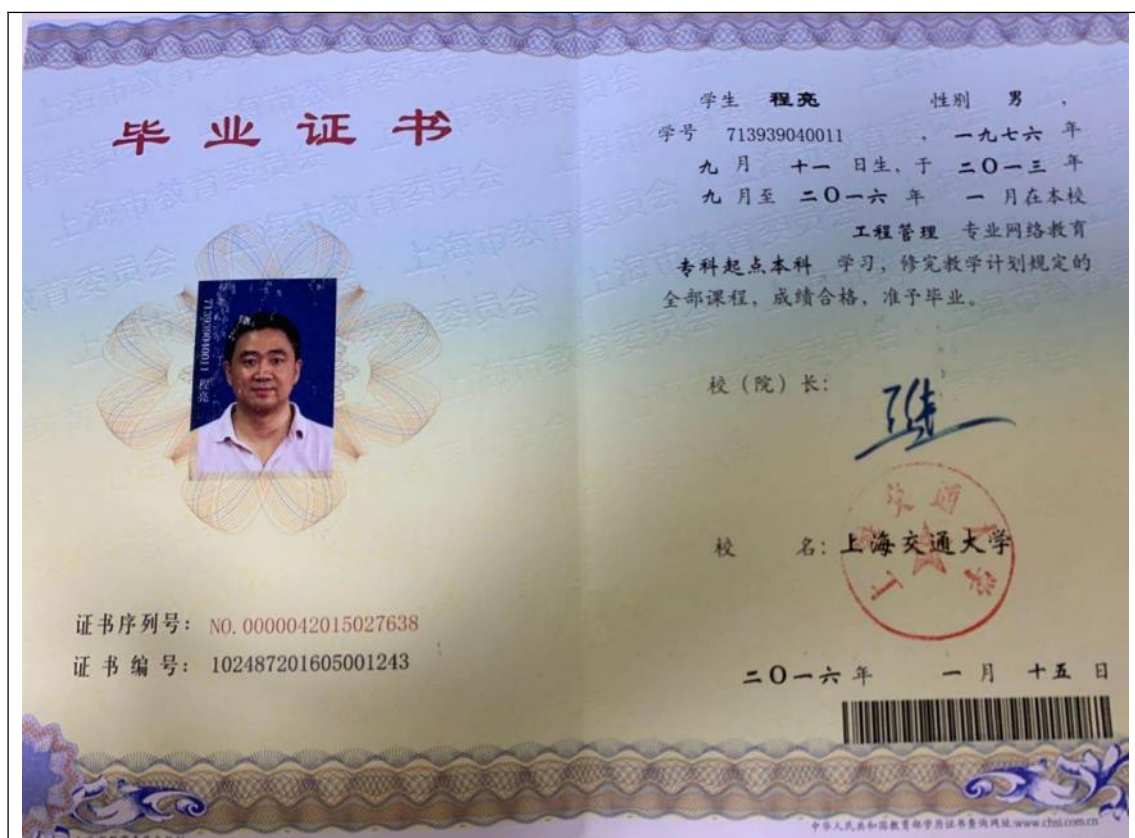 毕业证书
713939040011 程亮
证书序列号： NO. 0000042015027638
证书编号： 102487201605001243
学生 程亮 性别 男 ，
学号 713939040011 ，一九七六 年
九 月 十一 日生，于 二〇一三 年
九 月至 二〇一六 年 一 月在本校
工程管理 专业网络教育
专科起点本科 学习，修完教学计划规定的
全部课程，成绩合格，准予毕业。
校（院）长：
校 名：上海交通大学
上海交通大学
二〇一六 年 一 月 十五 日
中华人民共和国教育部学历证书查询网址:www.chsi.com.cn
上海市教育委员会